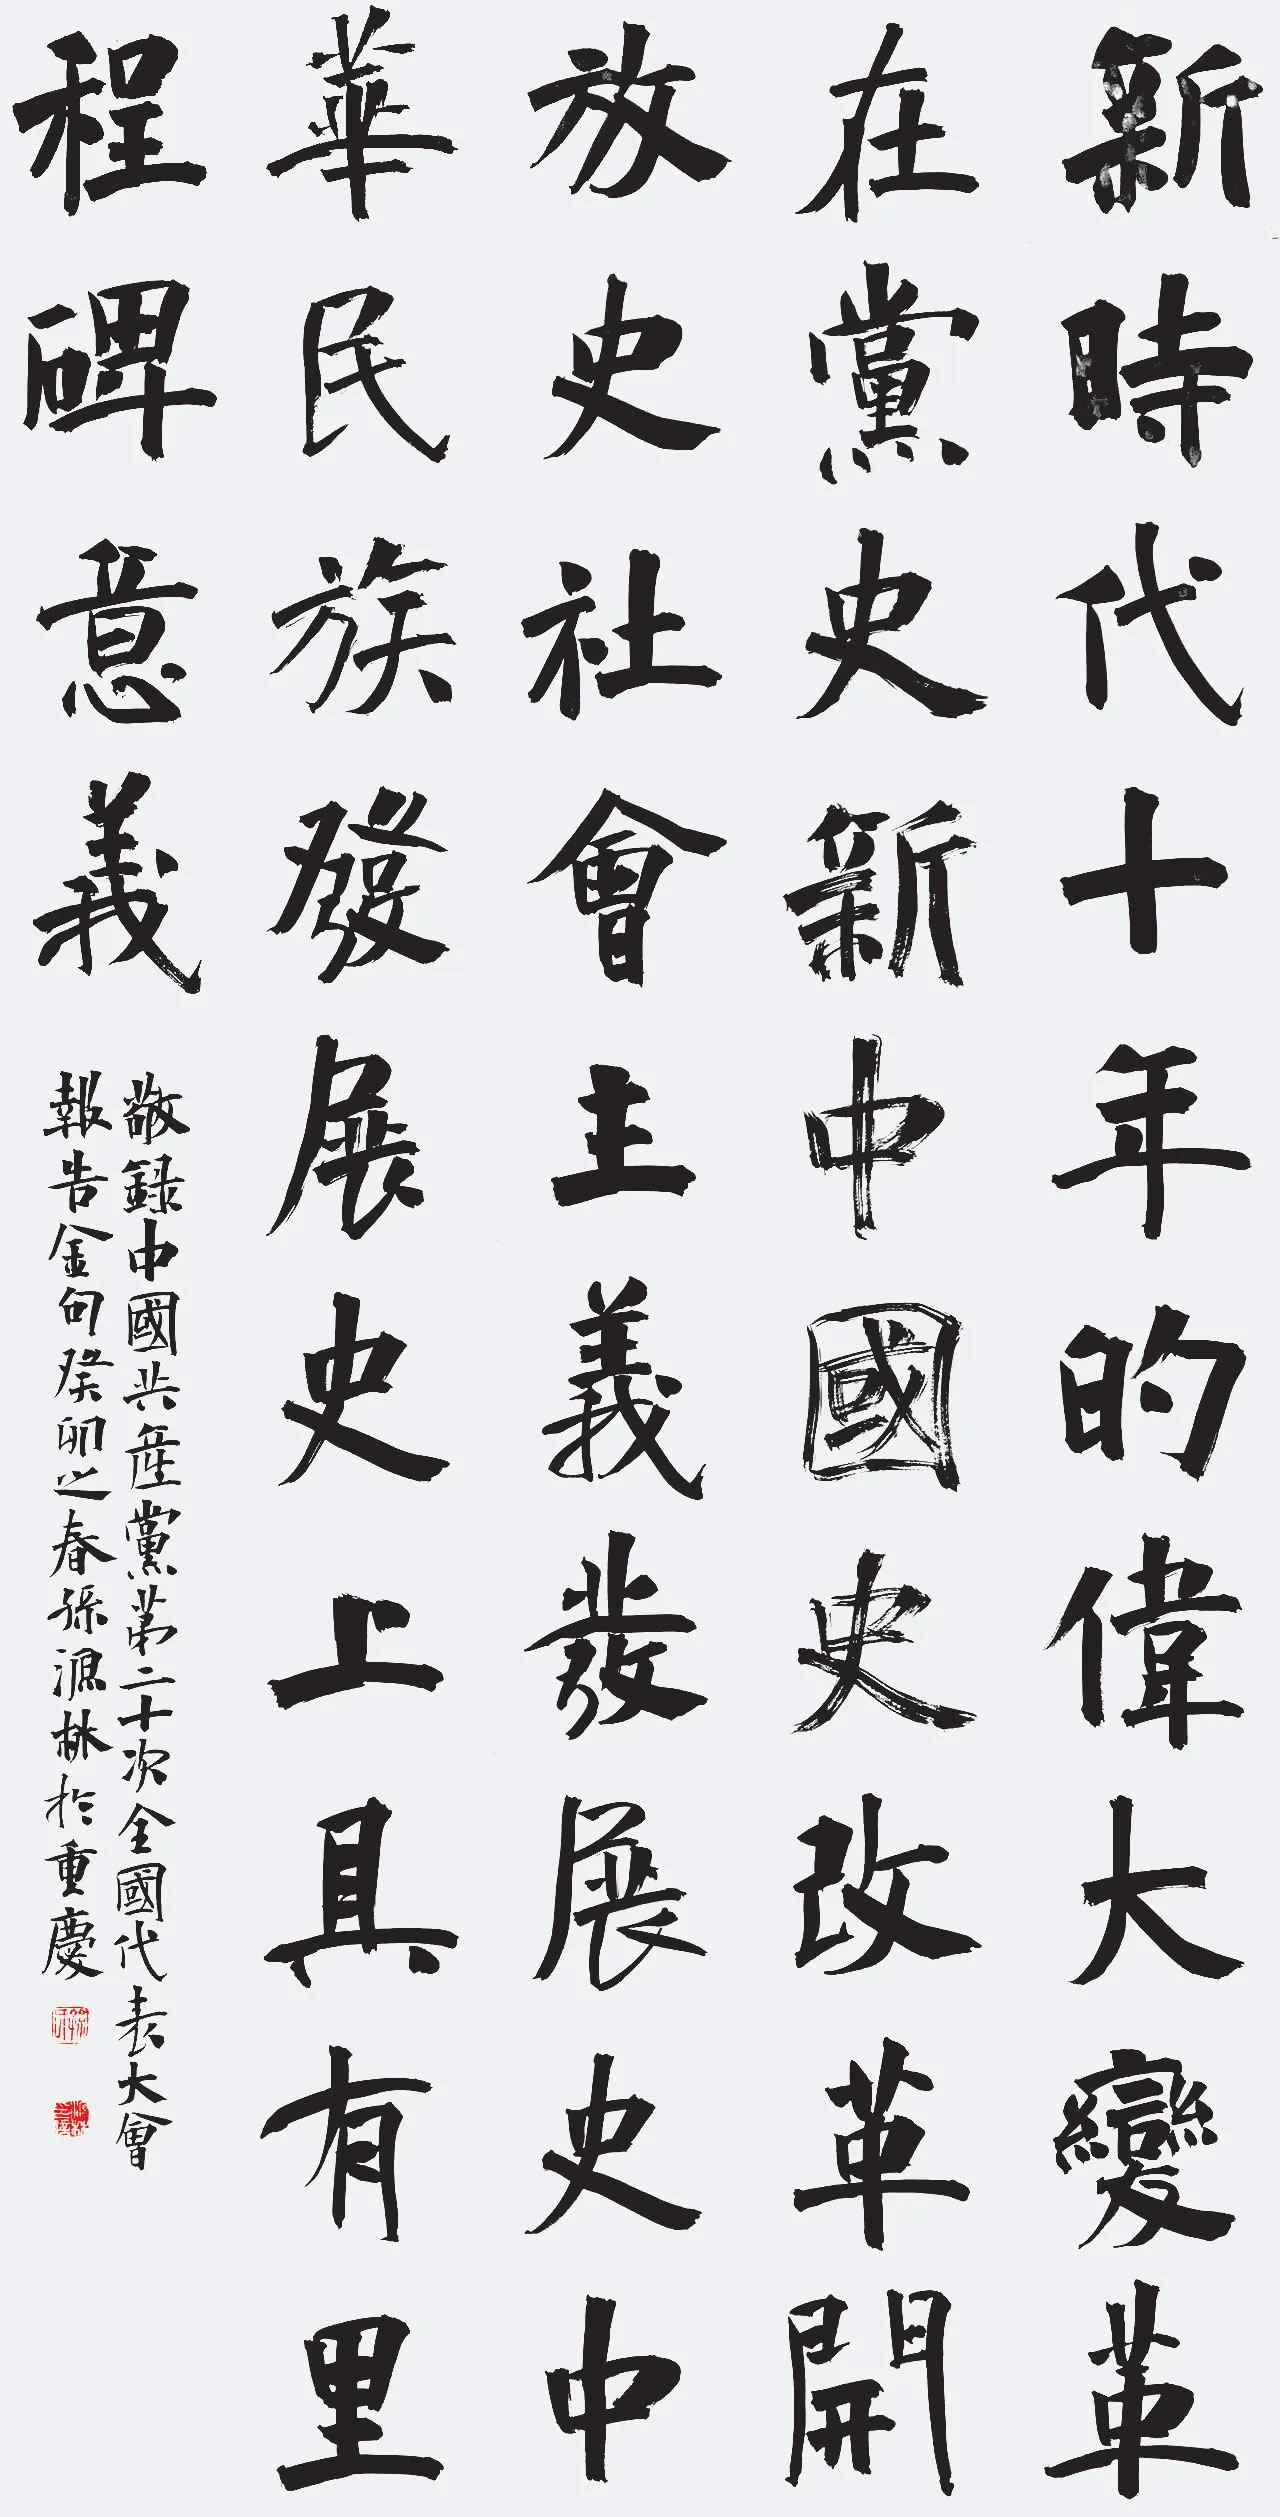 新時代十年的偉大變革
在黨史新中國史改革開
放史社會主義發展史中
華民族發展史上具有里
程碑意義
敬録中國共産黨第二十次全國代表大會
報告金句癸卯之春孫滬林於重慶